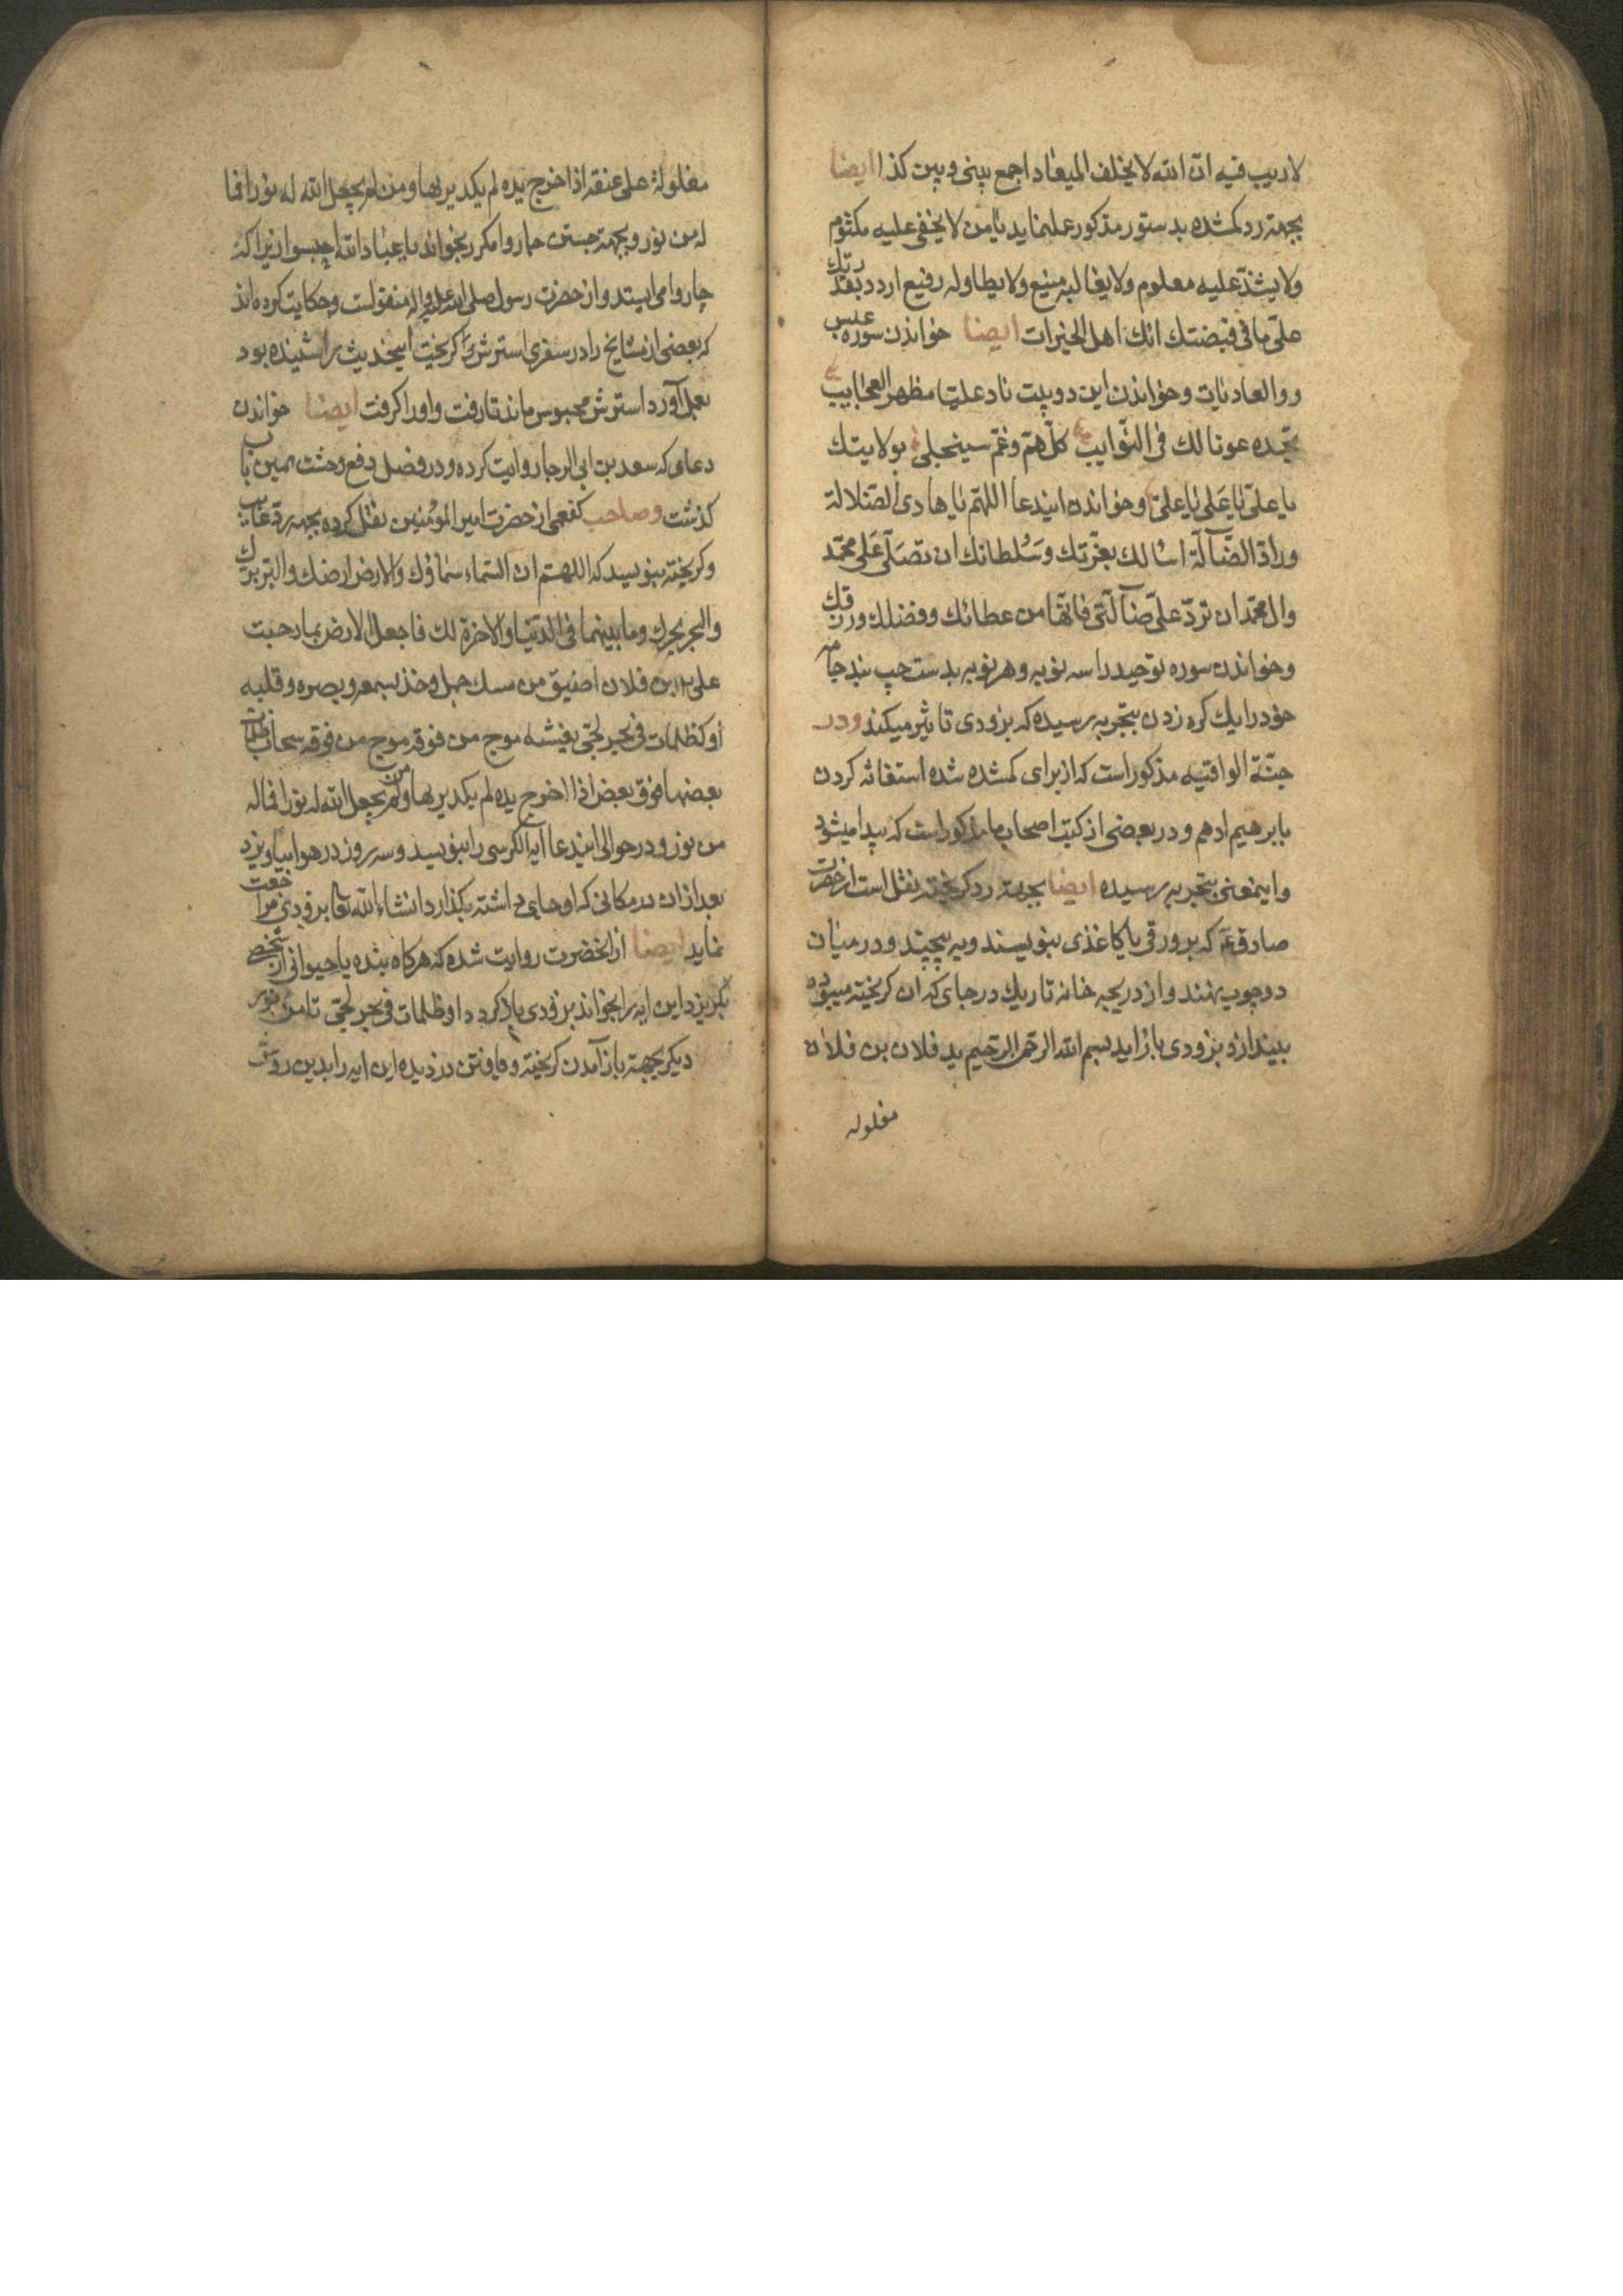 لاریب فیه ان الله لا یخلف المیعاد اجمع بینی وبین کذا ایضا
بجهته رد کمشده بدستور مذکور عملنماید یامن لا یخفی علیه مکتوم
ولا یشذ علیه معلوم ولا یغالبه منیع ولا یطاوله رفیع اردد بقدرتك
علی ما فی قبضتك انك اهل الخیرات ایضا خواندن سوره عبس
ووالعادیات وخواندن این دوبیت ناد علیا مظهر العجایب
تجده عونا لك فی النوایب کل هم وغم سینجلی بولایتك
یا علی یا علی یا علی وخوانده ایندعا اللهم یا هادی الضلالة
وراد الضآلة اسالك بعزتك وسلطانك ان تصلی علی محمد
وال محمد ان ترد علی ضآلتی فانها من عطائك وفضلك ورزقك
وخواندن سوره توحید را سه نوبه وهر نوبه بدست چپ بند جامه
خود را یك کره زدن بتجربه رسیده که بزودی تاثیر میکند ودر
جنة الواقیه مذکور است که از برای کمشده شده استغاثه کردن
بابرهیم ادهم ودر بعضی از کتب اصحاب ما مذکور است که پیدا میشود
واینمعنی بتجربه رسیده ایضا بجهته رد کریخته نقل است از حضرت
صادق ع که بر ورقی یا کاغذی بنویسند وبه پیچند ودر میان
دو چوب نهند واز دریچه خانه تاریك در جای که ان کریخته میبوده
بیندازد بزودی باز اید بسم الله الرحمن الرحیم ید فلان بن فلان
مغلوله
مغلولة علی عنقه اذا اخرج یده لم یکد یریها ومن لم یجعل الله له نورا فما
له من نور وبجهته جستن چهاروا مکرر بخواند یا عباد الله احبسوا زیرا که
چاروا می ایستد واز حضرت رسول صلی الله علیه واله منقولست وحکایت کرده اند
که بعضی از مشایخ را در سفری استرش کریخت اینحدیث را شنیده بود
بعمل آورد استرش محبوس ماند تا رفت واورا کرفت ایضا خواندن
دعای که سعد بن ابی الرجا روایت کرده ودر فضل دفع وحشت همین باب
کذشت وصاحب کفعمی از حضرت امیر المومنین نقل کرده بجهه رد غایب
وکریخته بنویسد که اللهم ان السماء سماؤك والارض ارضك والبر برك
والبحر بحرك وما بینهما فی الدنیا والاخرة لك فاجعل الارض بما رحبت
علی بن فلان اضیق من مسك جمل وخذ بسمعه وبصره وقلبه
او کظلمات فی بحر لجی یغیشه موج من فوقه موج من فوقه سحاب ظلمات
بعضها فوق بعض اذا اخرج یده لم یکد یریها ومن لم یجعل الله له نورا فما له
من نور ودر حوالی ایندعا ایه الکرسی را بنویسد وسه روز در هوا بیاویزد
بعد از ان در مکانی که او جای داشته بکذارد انشاء الله تعا بزودی مراجعت
نماید ایضا از انحضرت روایت شده که هرکاه بنده یا حیوانی از شخصی
بکریزد این ایه را بخواند بزودی باز کردد او ظلمات فی بحر لجی تا من نور
دیکر بجهته باز آمدن کریخته ویافتن دزدیده این ایه را بدین روش